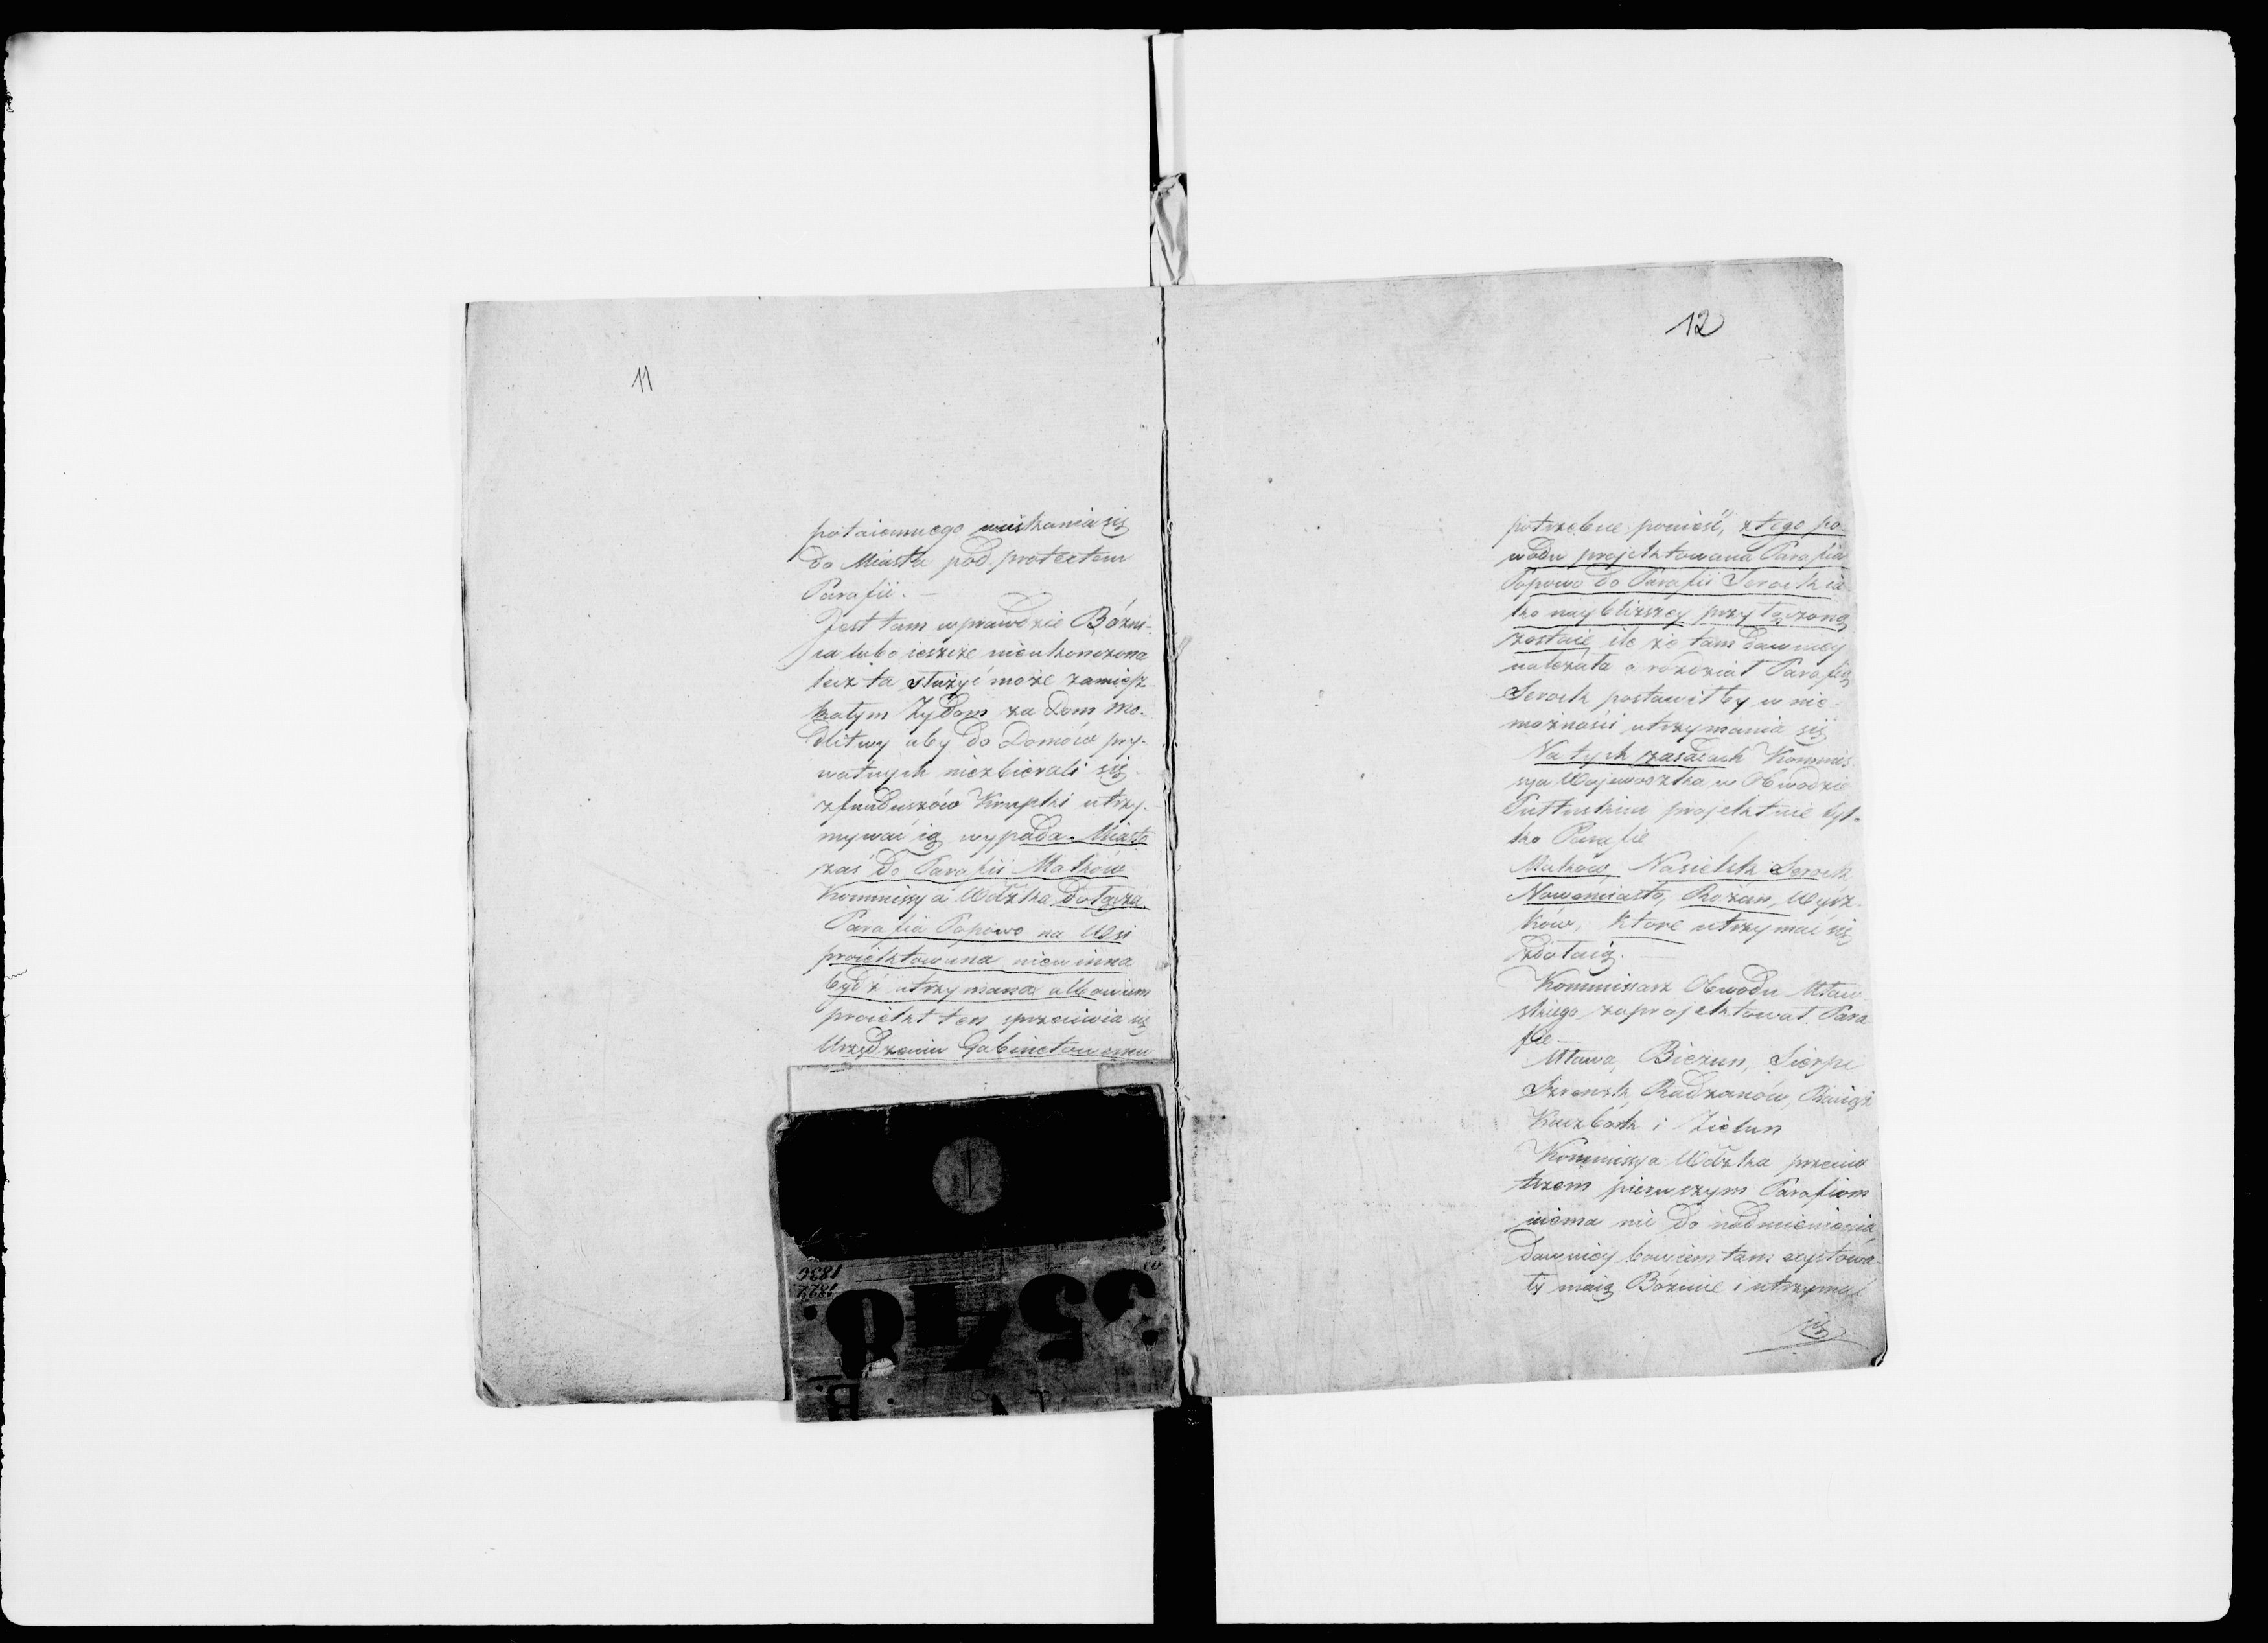 11
potaiemnego wciskania się
do Miasta pod protextem
Parafii. —
Jest tam wprawdzie Bóżni-
ca lubo ieszcze nieukonczona
lecz ta służyć może zamiesz
kałym Żydom za Dom Mo-
dlitwy aby do Domów pry-
watnych niezbierali się
z funduszów Krupki utrzy-
mywać ią wypada. Miasto
zaś do Parafii Makow
Kommissya Wdzka dołącza.
Parafia Popowo na Wsi
proiektowana niewinna
bydź utrzymana albowiem
proiekt ten sprzeciwia się
Urządzeniu Gabinetowemu
1
1836
1822
3548
B.
N
12
potrzebne ponieść, z tego po-
wodu projektowana Parafia
Popowo do Parafii Serock ia-
ko naybliższey przyłączoną
zostaie, ile że tam dawniey
należała a rozdział Parafią
Serock postawiłby w nie-
możności utrzymania się
Na tych zasadach Kommis-
sya Wojewodzka w Obwodzie
Pułtuskim projektuie tyl-
ko Parafie
Maków, Nasielsk Serock
Nowemiasto, Rożan, Wysz-
ków, które utrzymać się
zdołaią. —
Kommissarz Obwodu Mław-
skiego zaprojektował Para
fie —
Mława, Bieżun, Sierpc
Szrensk, Radzanów, Raciąż
Kuczbork i Zielun
Kommissya Wdzka przeciw
trzem pierwszym Parafiom
niema nic do nadmienienia
dawniey bowiem tam exystowa-
ły maią Bóżnice i utrzymać
się